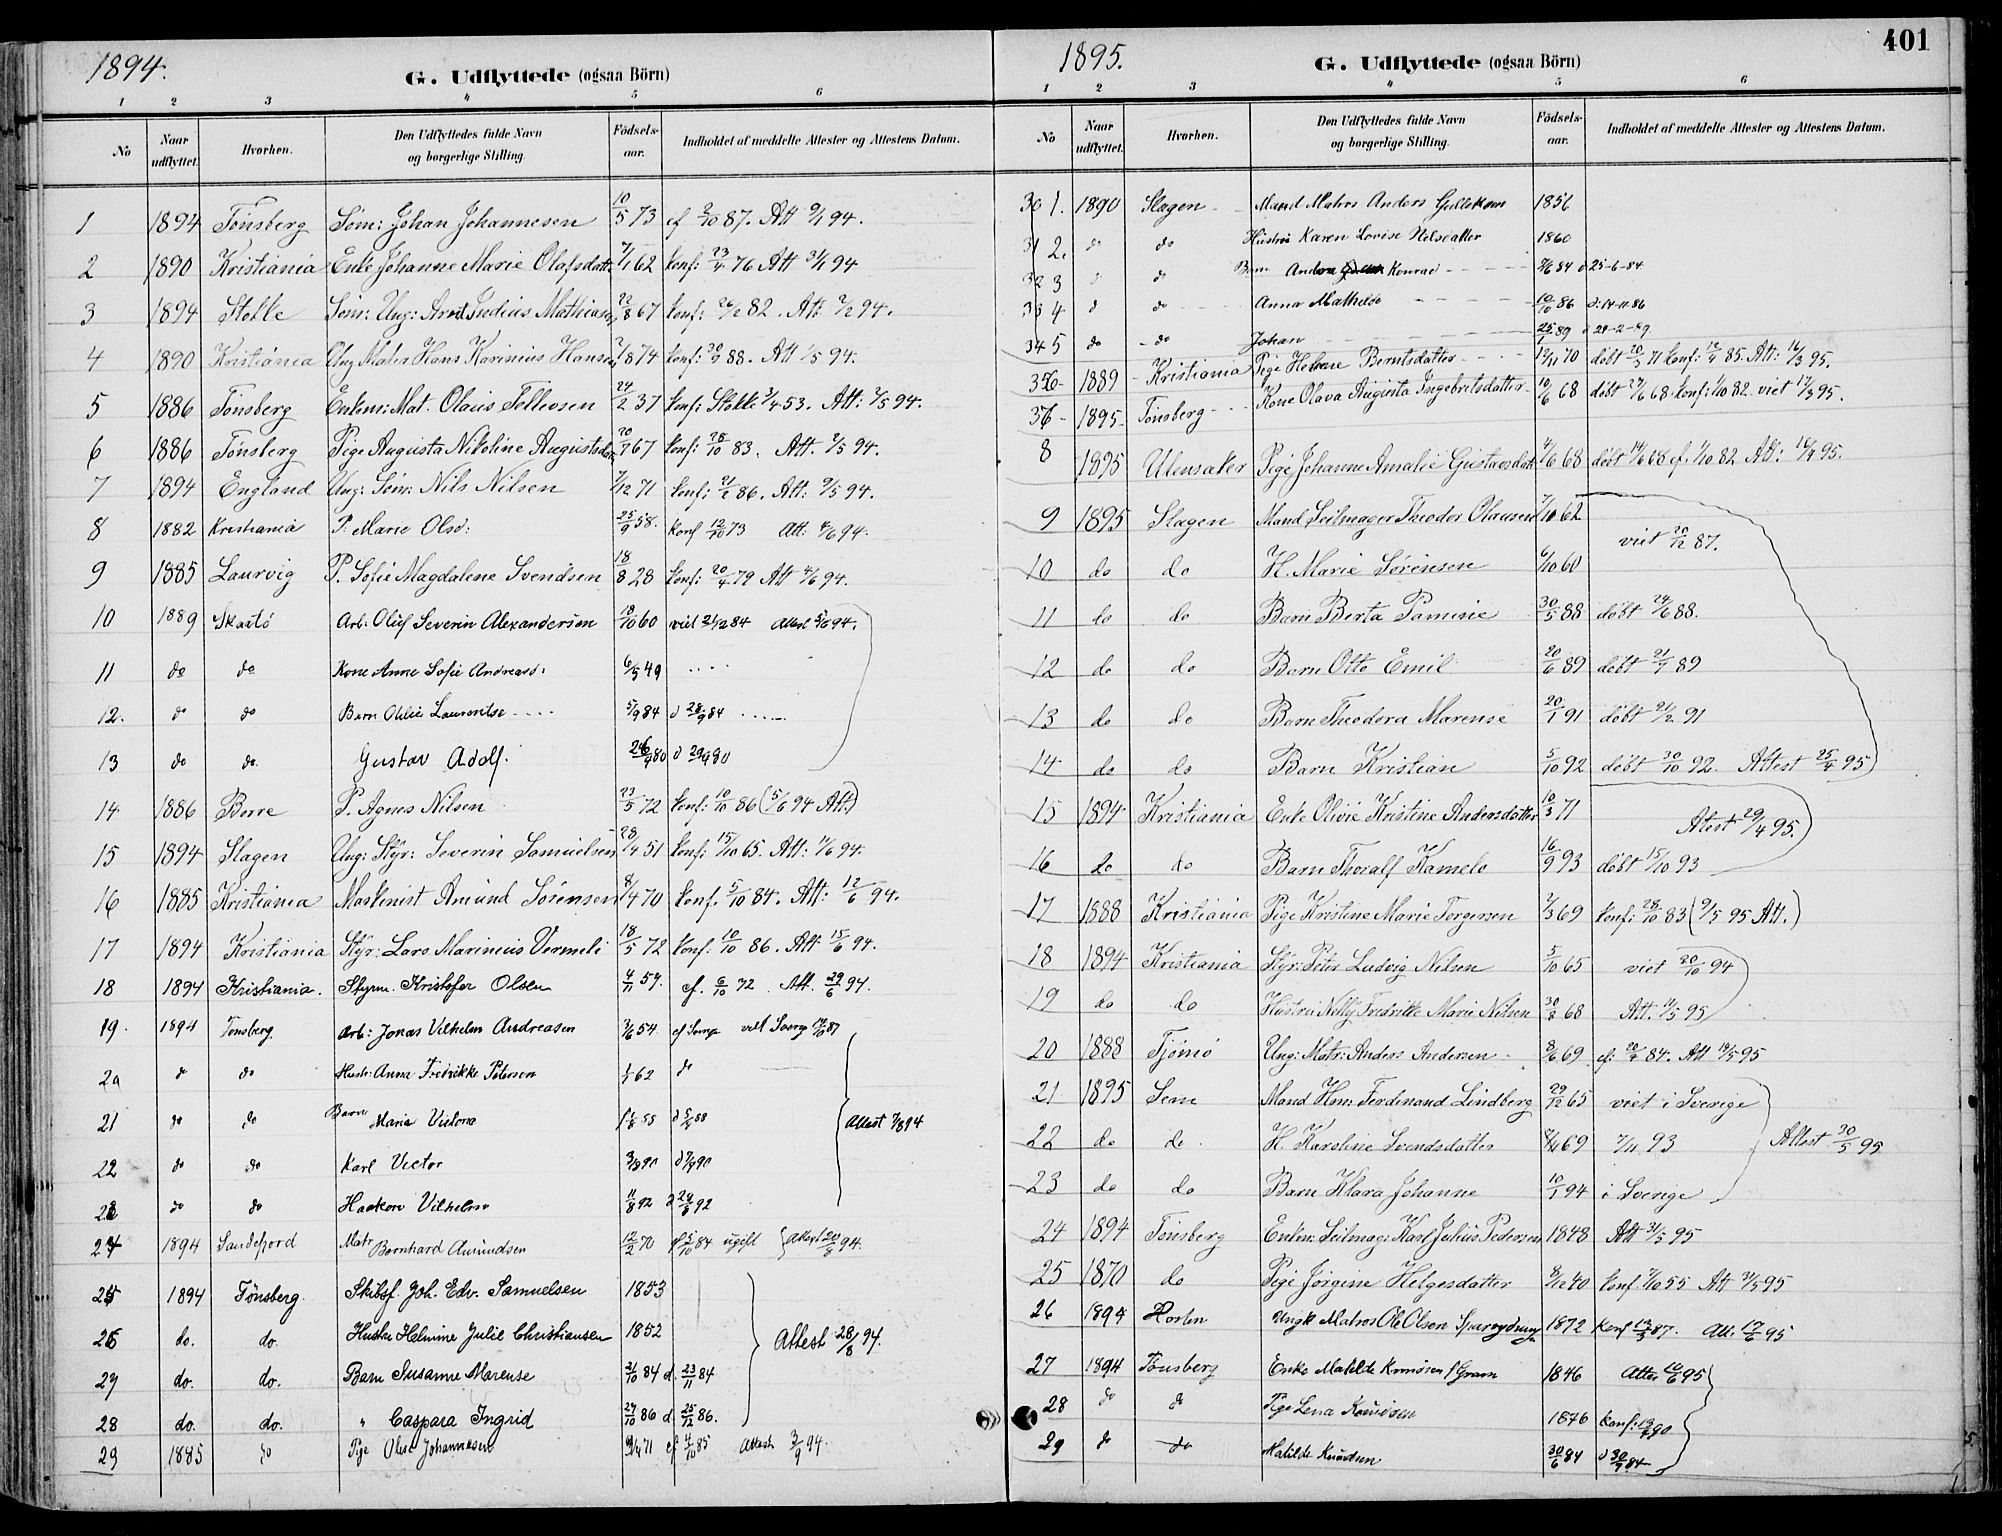 1894.
G. Udflyttede (ogsaa Börn)
1 2 3 4 5 6
No Naar udflyttet. Hvorhen. Den Udflyttedes fulde Navn og borgerlige Stilling. Födsels-aar. Indholdet af meddelte Attester og Attestens Datum.
1 1894 Tönsberg Söm: Johan Johannesen 10/5 73 cf 2/10 87. Att 9/1 94.
2 1890 Kristiania Enke Johanne Marie Olafsdatt. 7/1 62 konf: 23/4 76 Att 31/1 94
3 1894 Stokke Söm: Ung: Arnt Indius Mathiasen 22/8 67 konf: 26/12 82. Att. 2/2 94.
4 1890 Kristiania Ung Matr Hans Karinius Hansen 74 konf: 30/9 88. Att 1/5 94.
5 1886 Tönsberg Enkem: Mat. Olaus Tellevsen 24/2 37 konf: Stokke 3/4 53. Att: 2/5 94.
6 1886 Tönsberg Pige Augusta Nikoline Augustsdatt 20/7 67 konf: 28/10 83. Att. 2/5 94.
7 1894 England Ung: Söm: Nils Nilsen 7/12 71 konf: 21/2 86. Att: 9/5 94.
8 1882 Kristiania P. Marie Olsd: 25/9 58. konf 12/10 73 Att: 4/6 94.
9 1885 Laurvig P. Sofie Magdalene Svendsen 18/8 28 konf: 20/4 79 Att 4/6 94.
10 1889 Skaatö Arb: Oluf Severin Alexandersen 18/10 60 viet 21/12 84 Attest 5/6 94.
11 do do Kone Anne Sofie Andreasd: 6/3 49
12. do do Barn Othlie Laurentse 5/9 84 d 28/9 84
13 do do. Gustav Adolf. 26/9 80 d 29/9 80
14 1886 Borre P. Agnes Nilsen 23/5 72 konf: 10/10 86 (5/6 94 Att)
15 1894 Slagen Ung: Styr: Severin Samuelsen 28/4 51 konf: 15/10 65. Att: 11/6 94.
16 1885 Kristiania Maskinist Amund Sörensen 8/4 70 konf. 5/10 84. Att: 12/6 94.
17 1894 Kristiania Styr: Lars Marinius Vermeli 18/5 72 konf: 10/10 86. Att: 15/6 94.
18 1894 Kristiania. Styrm. Kristofer Olsen 4/11 57. cf. 6/10 72 Att. 29/6 94.
19. 1894 Tonsberg. Arb: Jonas Vilhelm Andreasen 3/6 54 cf Sverge viet Sverg 14/10 87
20 do do Hustr: Anna Fredrikke Petersen 1/7 62 do
21 do do Barn Maria Victoria 88 88 Attest 7/8 94
22 do do Karl Victor 3/3 90 d 7/4 90
23 do do Haakon Vilhelm 11/8 92 d 29/8 92
24 1894 Sandefjord Matr Bernhard Amundsen 12/2 70 cf 5/10 84 ugift Attest 20/8 94.
25 1894 Tönsberg. Skibsf. Joh. Edv. Samuelsen 1853
26 do. do. Hustru Helmine Julie Christiansen 1852 Attest 28/8 94.
27 do. do. Barn Susanne Marense 21/10 84 d. 23/11 84
28 do. do. " Caspara Ingrid 27/10 86 d 25/12 86.
29 1885 do Pige Olise Johannesen 71 cf 4/10 85 Attest 3/9 94.
401
1895.
G. Udflyttede (ogsaa Börn)
1 2 3 4 5 6
No Naar udflyttet. Hvorhen. Den Udflyttedes fulde Navn og borgerlige Stilling. Födsels-aar. Indholdet af meddelte Attester og Attestens Datum.
30 1. 1890 Slagen Mand Matros Anders Gulliksen 1856
31 2. do do Hustru Karen Lovise Nilsdatter 1860
32 3 d do Barn Andrea Konrad 84 d 25-6-84
33 4 d do Anna Mathilde 10/10 86 d: 14-11 86
34 5 do do Johan 25/1 89 d 24-2-89
35 6 1889 Kristiania Pige Helene Berntsdatter 19/11 70 döbt 20/3 71 konf: 12/4 85. Att: 16/3 95.
36 1895 Tönsberg Kone Olava Augusta Ingebretsdatter 10/6 68 döbt 29/6 68. konf: 1/10 82 viet 17/3 95.
8 1895 Ulensaker Pige Johanne Amalie Gustavsdatt. 4/6 68 döbt 14/6 68 cf. 1/10 82 Att: 16/4 95.
9 1895 Slagen Mand Seilmager Theodor Olausen 7/10 62 viet 20/12 87.
10 do do H. Marie Sörensen 6/10 60
11 do do Barn Berta Pamine 30/5 88 döbt 24/6 88.
12 do do Barn Otto Emil 20/6 89 döbt 21/7 89
13 do do Barn Theodora Marense 20/1 91 döbt 21/2 91
14 do do Barn Kristian 5/10 92 döbt 30/10 92. Attest 25/4 95
15 1894 Kristiania Enke Olivie Kristine Andersdatter 10/3 71 Attest 29/4 95.
16 do do Barn Thoralf Kamelo 16/9 93 döbt 15/10 93
17 1888 Kristiania Pige Kristine Marie Torgersen 2/3 69 konf: 28/10 83 (9/5 95 Att.)
18 1894 Kristiania Styr: Peter Ludvig Nilsen 5/10 65 viet 20/10 94
19 do do Hustru Nelly Fredrikke Marie Nilsen 30/8 68 Att. 11/5 95
20 1888 Tjömö Ung: Matr: Anders Andersen 8/6 69. cf: 20/4 84. Att 14/5 95
21 1895 Sem Mand Hm: Ferdinand Lindberg 29/12 65 viet i Sverige
22 do do. H. Karoline Svendsdatter 8/4 69 7/11 93 Attest 30/5 95
23 do do Barn Klara Johanne 10/1 94 i Sverige
24 1894 Tönsberg Enkm: Seilmag: Karl Julius Pedersen 1848 Att 31/5 95
25 1870 do Pige Jörgine Helgesdatter 8/12 40 konf 7/10 55 Att 31/5 95
26 1894 Horten Ungk Matros Ole Olsen 1872 konf 13/3 87. Att. 17/6 95
27 1894 Tönsberg Enke Matilde Knudsen f Gram 1846 Attes 26/6 95
28 do do Pige Lena Knudsen 1876 konf: 90
29 do do Matilde Knudsen 30/6 84 d 30/9 84